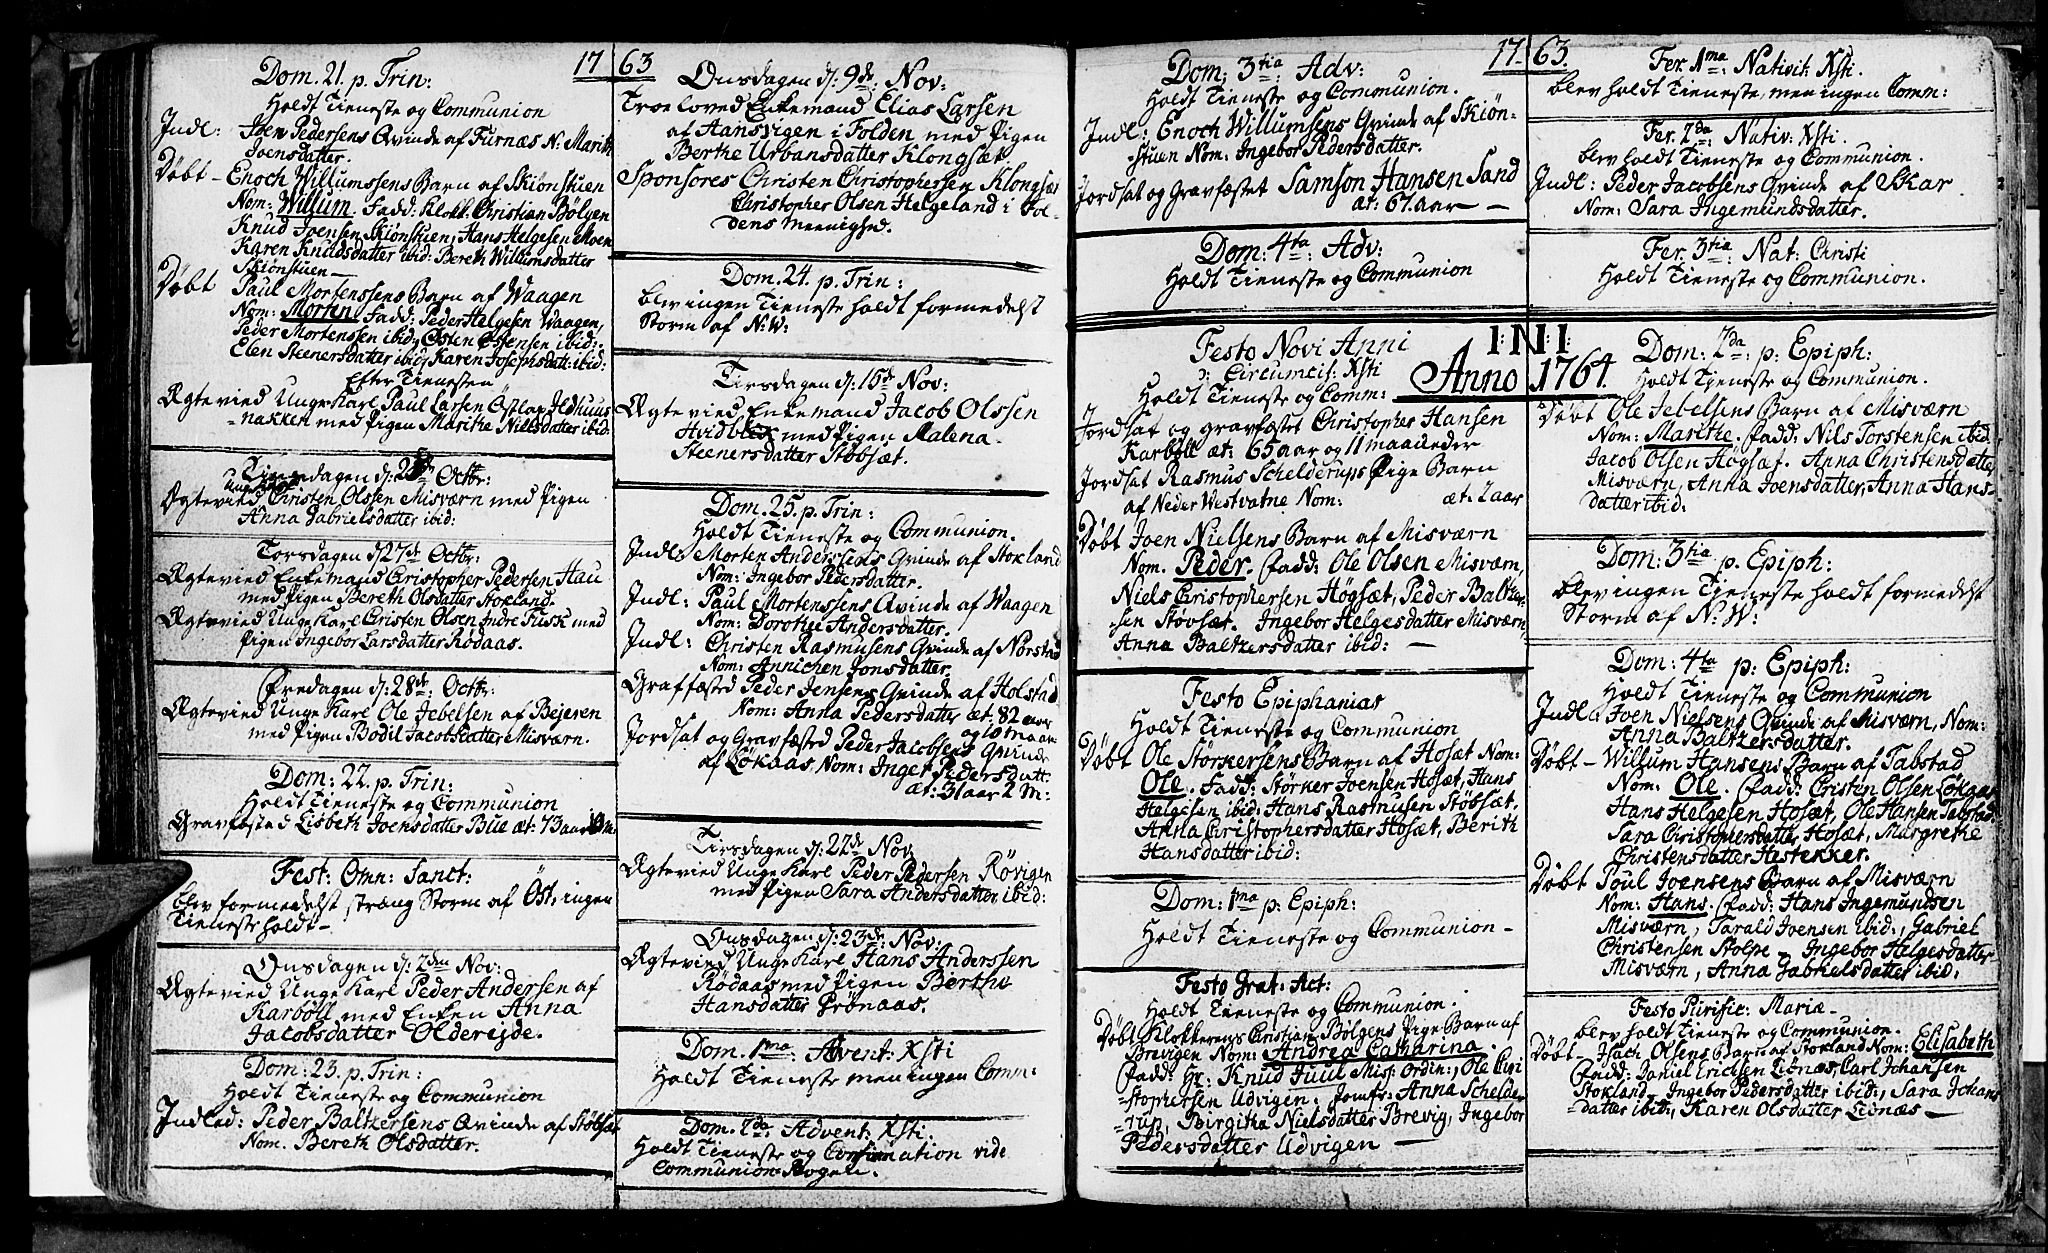 17 63
Dom. 21. p. Trin:
Holdt Tieneste og Communion
Indl: Joen Pedersens Qvinde af Furnæs N: Marith
Joensdatter.
Døbt - Enoch Willumssens Barn af Skiønstuen
Nom: Willum. Fadd: Klokk. Christian Bölgen
Knud Joensen Skiönstuen, Hans Helgesen Moen
Karen Knudsdatter ibid: Bereth Willumsdatter
Skiönstuen -
Døbt Paul Mortenssens Barn af Waagen
Nom: Morten Fadd: Peder Helgesen Waagen,
Peder Mortenssen ibid, Østen Ossensen ibid:
Elen Steenersdatter ibid, Karen Josephsdatt: ibid:
Efter Tienesten
Ægtevied Unge Karl Paul Larsen Östlap Ildhuus-
-nakken med Pigen Marithe Nielsdatter ibid:
Octbr:
Ægtevied Unge Karl Christen Olssen Misværn med Pigen
Anna Gabrielsdatter ibid:
Torsdagen d: 27de Octbr:
Ægtevied Enkemand Christopher Pedersen Hau
med Pigen Bereth Olsdatter Stokland.
Ægtevied Unge Karl Cristen Olsen Indre Kusk med
Pigen Ingebor Larsdatter Rødaas.
Fredagen d: 28de: Octbr:
Ægtevied Unge Karl Ole Jebelsen af Bejeren
med Pigen Bodil Jacobsdatter Misværn.
Dom: 22. p. Trin:
Holdt Tieneste og Communion
Gravfæsted Lisbeth Joensdatter Bue æt: 73 aar 10 m.
Fest: Omn: Sanct:
blev formedelst stræng Storm af Öst, ingen
Tieneste holdt -
Onsdagen d: 2den Nov:
Ægtevied Unge Karl Peder Andersen af
Karböll med Enken Anna
Jacobsdatter Oldereide.
Dom: 23. p. Trin:
Holdt Tieneste og Communion
Indled: Peder Baltzersens Qvinde af Stöbsæt
Nom. Bereth Olsdatter.
Onsdagen d: 9de: Nov:
Troeloved Enkemand Elias Larsen
af Aansvigen i Folden med Pigen
Berthe Urbansdatter Klongsæt.
Sponsores Christen Christophersen Klongsæt
Christopher Olsen Helgeland i Fol-
dens Meenighed.
Dom. 24. p. Trin:
blev ingen Tieneste holdt formedelst
Storm af N:W:
Tirsdagen d: 15de Nov:
Ægteviede Enkemand Jacob Olssen
med Pigen Malena-
Steenersdatter Støbsæt.
Dom. 25. p. Trin:
Holdt Tieneste og Communion.
Indl: Morten Anderssens Qvinde af Stokland
Nom: Ingebor Pedersdatter.
Indl: Paul Mortenssens Qvinde af Waagen
Nom: Dorothe Andersdatter.
Indl: Christen Rasmusens Qvinde af Norstad
Nom: Annichen Jonsdatter.
Graffæsted Peder Jensens Qvinde af Holstad
Nom: Anna Pedersdatter æt: 82 aar
og 10 maan:
Jordsat og Gravfæsted Peder Jacobsens Qvinde
af Lökaas Nom: Inger Pedersdatt:
æt: 31 aar 2 m:
Tirsdagen d: 22de Nov.
Ægteviede Unge Karl Peder Pedersen Røvigen
med Pigen Sara Andersdatter ibid:
Onsdagen d: 23de: Nov:
Ægteviede Unge Karl Hans Anderssen
Rödaas med Pigen Berthe
Hansdatter Prönaas.
Dom. 1ma: Advent: Xsti
Holdt Tieneste men ingen Comm:
Dom. 2da: Advent: Xsti.
Holdt Tieneste og Confirmation vide
Communion-Bogen.
17 63.
Dom: 3tia Adv:
Holdt Tieneste og Communion.
Indl: Enoch Willumsens Qvinde af Skiön-
-stuen Nom: Ingebor Pedersdatter.
Jordsat og Gravfæstet Samson Hansen Sand
æt: 67. aar -
Dom: 4ta: Adv:
Holdt Tieneste og Communion
I: N: I:
Anno 1764.
Festo Novi Anni
d: Circumcis: Xsti
Holdt Tieneste og Comm:
Jordsat og gravfæstet Christopher Hansen
Karböll æt: 65 aar og 11 maaneder
Jordsat Rasmus Schelderups Pige Barn
af Neder Westvatne Nom: æt: 2 aar
Døbt Joen Nielsens Barn af Misværn
Nom. Peder. Fadd: Ole Olsen Misværn,
Niels Cristophersen Högsæt, Peder Baltzer-
sen Støvsæt. Ingebor Helgesdatter Misværn,
Anna Baltzersdatter ibid: -
Festo Epiphanias
Holdt Tieneste og Communion
Döbt Ole Störkersens Barn af Hosæt Nom:
Ole. Fadd: Störker Joensen Hosæt, Hans
Helgesen ibid: Hans Rasmusen Stöbsæt.
Anna Christophersdatter Hosæt, Berith
Hansdatter ibid:
Dom: 1ma p: Epiph:
Holdt Tieneste og Communion -
Festo Grat: Act:
Holdt Tieneste og Communion.
Döbt Klokkerens Cristian Bölgens Pige Barn af
Brevigen Nom: Andrea Catharina.
Fadd: Hr: Knud Juul Miss: Ordin:, Ole Cri-
-stophersen Udvigen: Jomfr: Anna Schelde-
-rup, Birgitha Nielsdatter Brevig, Ingebor
Pedersdatter Udvigen -
Fer. 1ma: Nativit: Xsti.
blev holdt Tieneste, men ingen Comm:
Fer. 2da: Nativ: Xsti.
blev holdt Tieneste og Communion.
Indl: Peder Jacobsens Qvinde af Skar
Nom: Sara Ingemundsdatter.
Fer. 3tia: Nat: Christi
Holdt Tieneste og Communion.
Dom: 2da: p: Epiph:
Holdt Tieneste og Communion.
Döbt Ole Jebelsens Barn af Misværn
Nom: Marithe. Fadd: Nils Torstensen ibid
Jacob Olsen Högsæt. Anna Christensdatter
Misværn, Anna Joensdatter, Anna Hans-
datter ibid:
Dom: 3tia p. Epiph:
blev ingen Tieneste holdt formedelst
Storm af N:W:
Dom: 4ta p: Epiph:
Holdt Tieneste og Communion
Indl: Joen Nielsens Qvinde af Misværn, Nom:
Anna Baltzersdatter.
Döbt - Willum Hansens Barn af Tabstad
Nom: Ole. Fadd: Cristen Olsen Lökaas
Hans Helgesen Hosæt, Ole Hansen Tabstad
Sara Christophersdatter Hosæt, Margrethe
Christensdatter Hestekker.
Døbt Poul Joensens Barn af Misværn
Nom: Hans. Fadd: Hans Ingemundsen
Misværn, Tarald Joensen ibid:, Gabriel
Christensen Stolpe - Ingebor Helgesdatter
Misværn, Anna Gabrielsdatter ibid:
Festo Purific: Mariæ -
blev holdt Tieneste og Communion.
Döbt - Isach Olsens Barn af Stokland Nom: Elisabeth
Fadd: Daniel Ericksen Lionæs, Carl Johansen
Stokland, Ingebor Pedersdatter ibid:, Sara Johans-
-datter ibid:, Karen Olsdatter Lionæs -